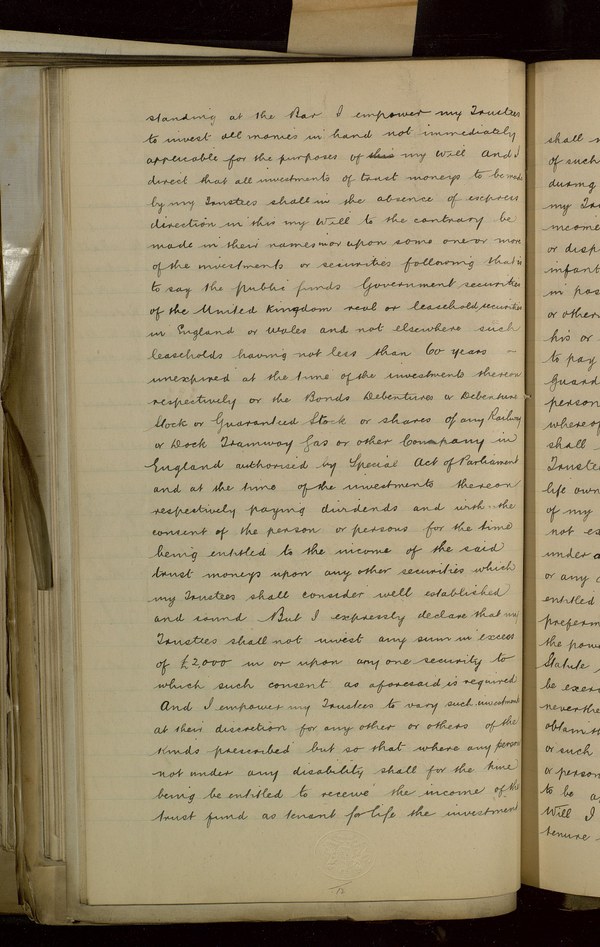 standing at the Bar I empower my Trustees
to invest all monies in hand not immediately
applicable for the purposes of this my Will And I
direct that all investments of trust moneys to be made
by my Trustees shall in the absence of express
direction in this my Will to the contrary be
made in their names in or upon some one or more
of the investments or securities following that is
to say the public funds Government securities
of the United Kingdom real or leasehold securities
in England or Wales and not elsewhere such
leaseholds having not less than 60 years –
unexpired at the time of the investments thereon
respectively or the Bonds Debentures or Debenture
Stock or Guaranteed Stock or shares of any Railway
or Dock Tramway Gas or other Company in
England authorised by Special Act of Parliament
and at the time of the investments thereon
respectively paying dividends and with the
consent of the person or persons for the time
being entitled to the income of the said
trust moneys upon any other securities which
my Trustees shall consider well established
and sound But I expressly declare that my
Trustees shall not invest any sum in excess
of £2,000 in or upon any one security to
which such consent as aforesaid is required
And I empower my Trustees to vary such investments
at their discretion for any other or others of the
kinds prescribed but so that where any person
not under any disability shall for the time
being be entitled to receive the income of the
trust fund as tenant for life the investment
12
shall
of such
during
my
income
or disp
infant
in pos
or other
his or
to pay
Guard
person
where of
shall
Trustee
life own
of my
not ex
under a
or any
entitled
preferm
the pow
Statute
be exer
neverthe
obtain th
or such
or person
to be a
Will I
tenure